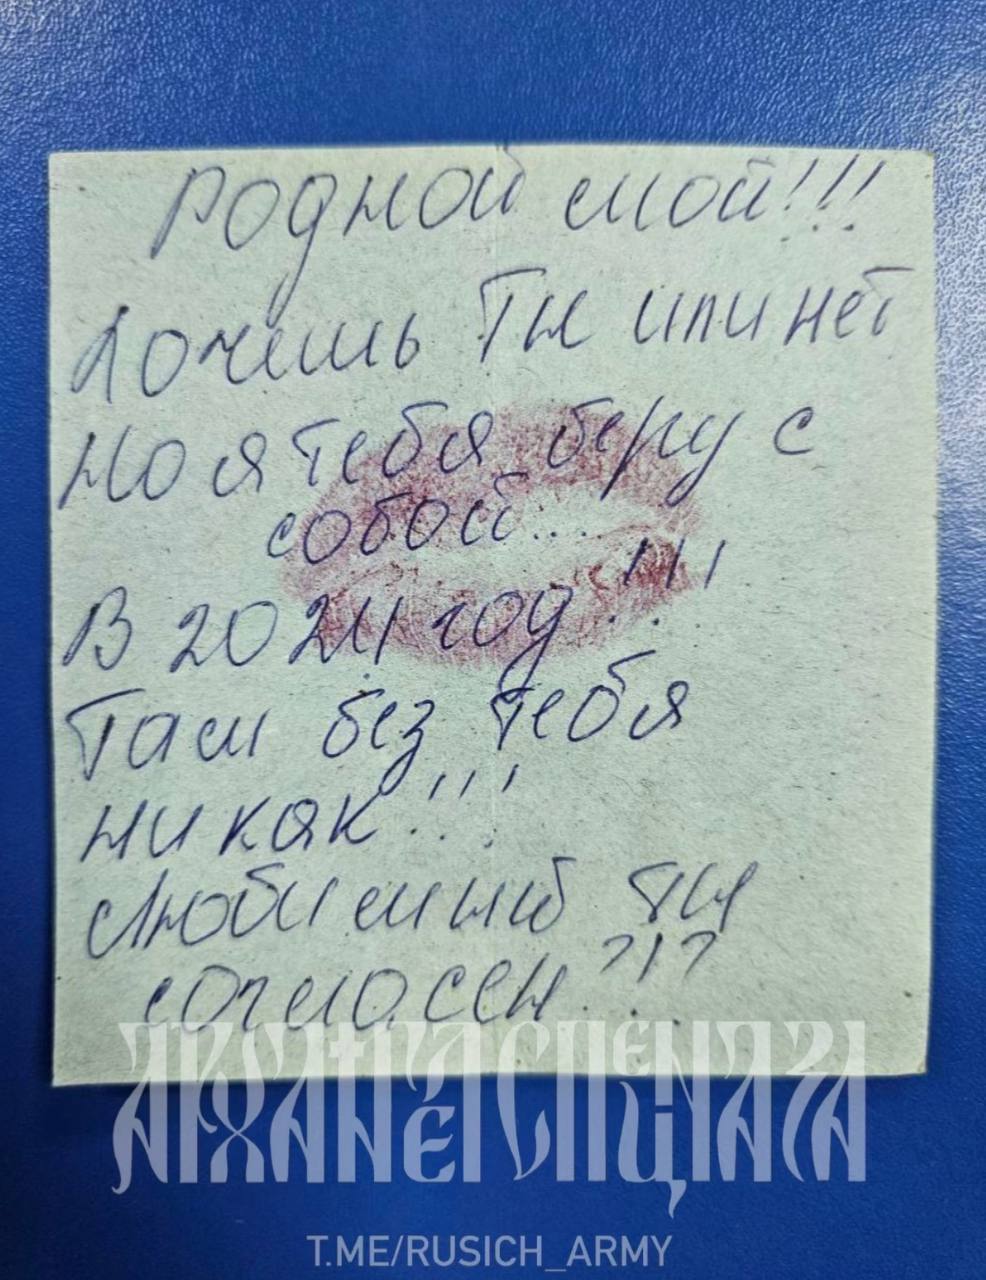 Родной мой!!!
Хочешь Ты или нет
Но я тебя беру с
собой...
В 2024 год!!!
Там без тебя
никак!!!
Любимый ты
согласен?!?
АРХАНГЕЛ СПЕЦНАЗА
T.ME/RUSICH_ARMY